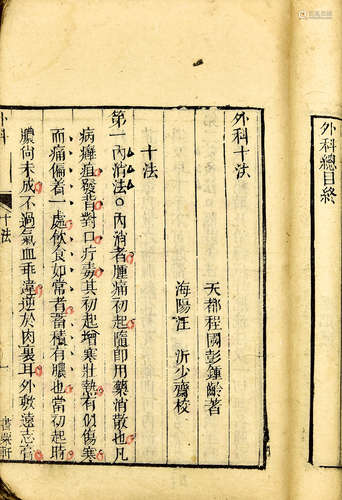 外科總目終
外科十法
天都程國彭鍾齡著
海陽汪　沂少齋校
十法
第一內消法○內消者腫痛初起隨即用藥消散也凡
病癰疽發背對口疔毒其初起增寒壯熱有似傷寒
而痛偏着一處飲食如常者蓄積有膿也當初起時
膿尚未成不過氣血乖違逆於肉裏耳外敷遠志膏
外科
十法
一